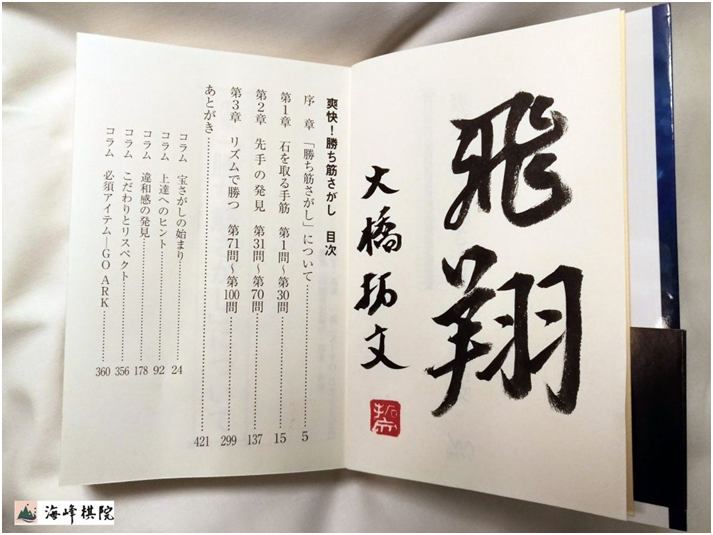 飛翔
大橋拓文
爽快！勝ち筋さがし　目次
序　章　「勝ち筋さがし」について 5
第１章　石を取る手筋　第1問～第30問 15
第２章　先手の発見　第31問～第70問 137
第３章　リズムで勝つ　第71問～第100問 299
あとがき 421
コラム　宝さがしの始まり 24
コラム　上達へのヒント 92
コラム　違和感の発見 178
コラム　こだわりとリスペクト 356
コラム　必須アイテム―GO ARK 360
海峰棋院